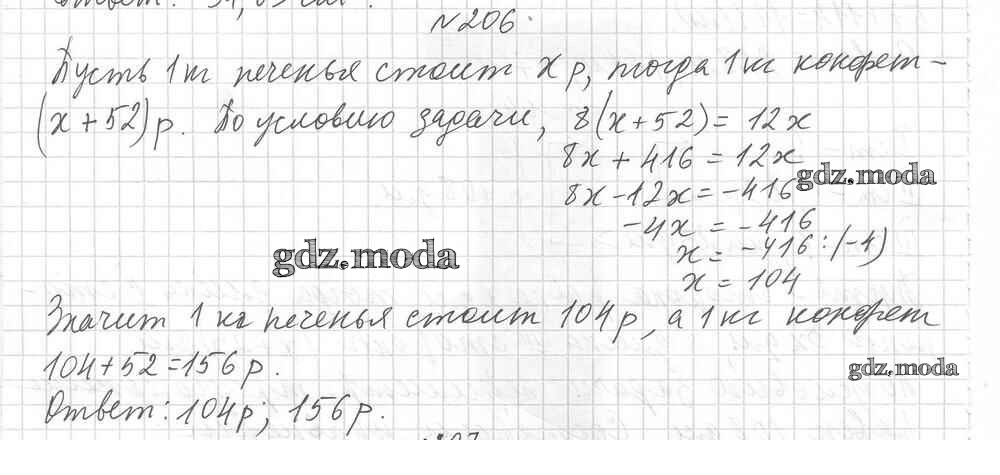 №206.
Пусть 1 кг печенья стоит x р, тогда 1 кг конфет -
(x+52) р. По условию задачи, 8(x+52) = 12x
8x + 416 = 12x
gdz.moda
8x - 12x = -416
-4x = -416
x = -416 : (-4)
gdz.moda
x = 104
Значит 1 кг печенья стоит 104 р, а 1 кг конфет
104+52=156 р.
gdz.moda
Ответ: 104 р; 156 р.